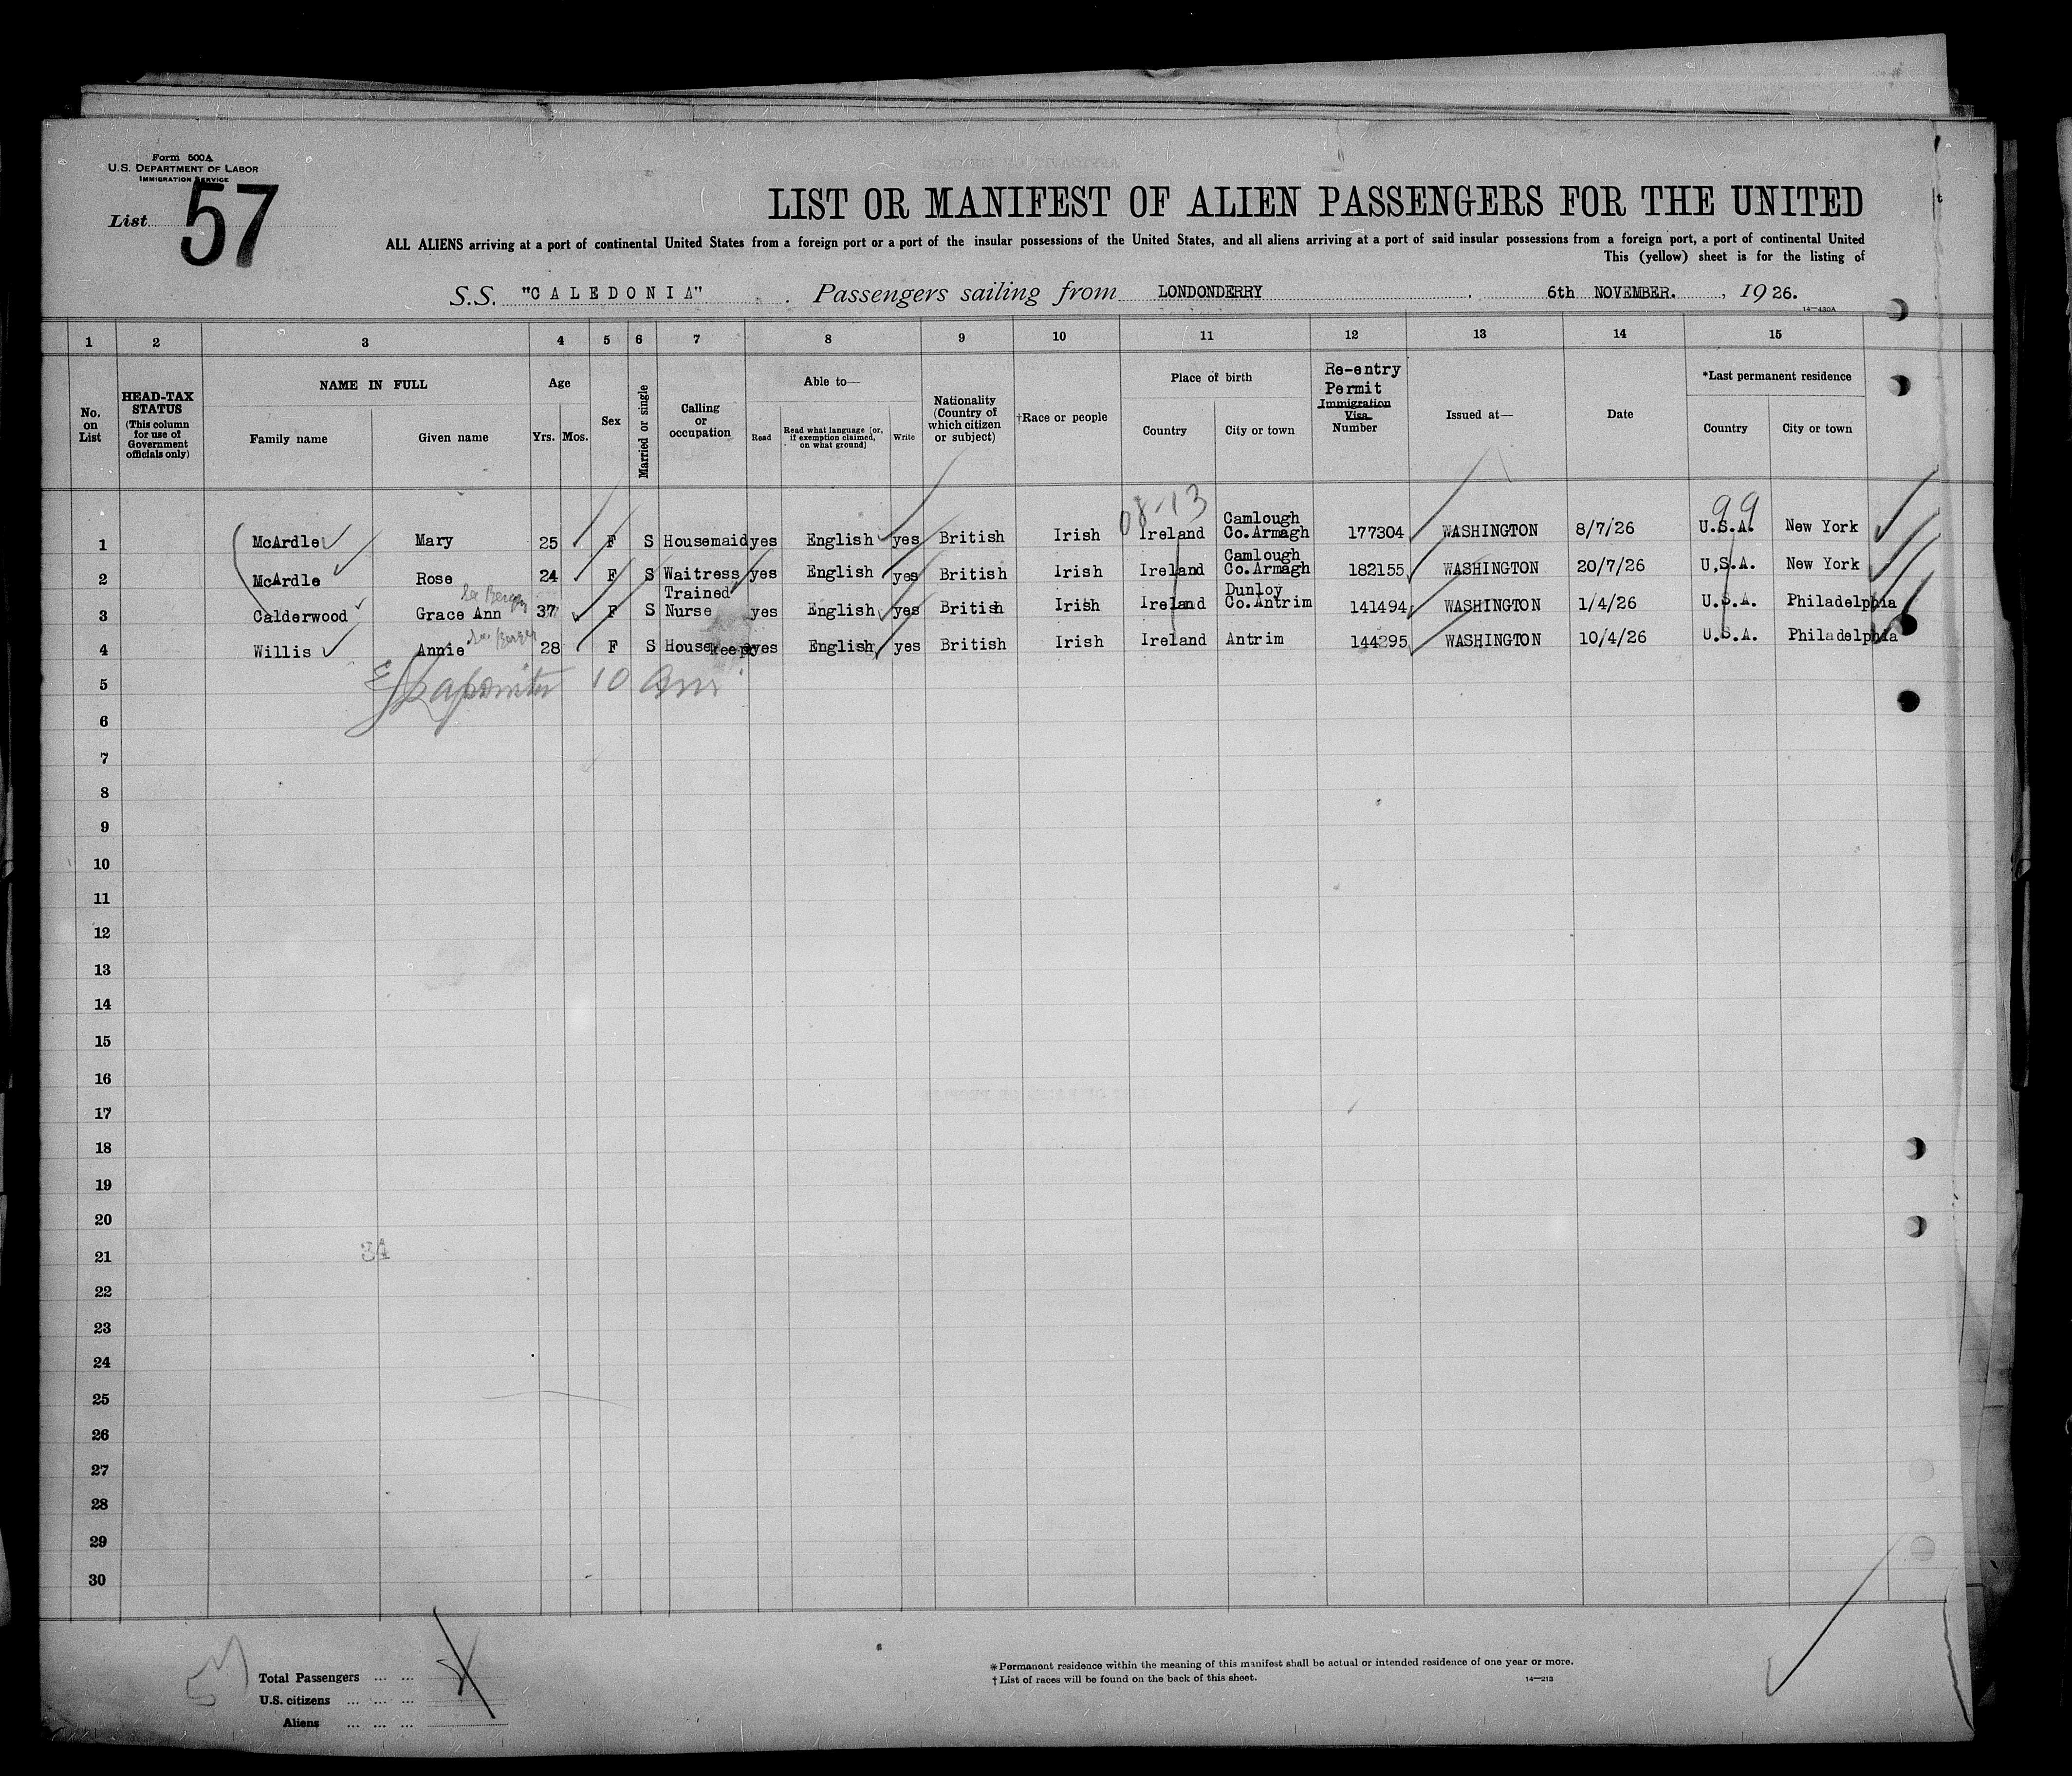 Form 500A
U.S. DEPARTMENT OF LABOR
IMMIGRATION SERVICE
List 57
LIST OR MANIFEST OF ALIEN PASSENGERS FOR THE UNITED
ALL ALIENS arriving at a port of continental United States from a foreign port or a port of the insular possessions of the United States, and all aliens arriving at a port of said insular possessions from a foreign port, a port of continental United
This (yellow) sheet is for the listing of
S.S. "CALEDONIA" Passengers sailing from LONDONDERRY, 6th NOVEMBER., 1926.
14—430A
1 2 3 4 5 6 7 8 9 10 11 12 13 14 15
No. on List
HEAD-TAX STATUS (This column for use of Government officials only)
NAME IN FULL
Family name Given name
Age
Yrs. Mos.
Sex
Married or single
Calling or occupation
Able to—
Read Read what language (or, if exemption claimed, on what ground) Write
Nationality (Country of which citizen or subject)
†Race or people
Place of birth
Country City or town
Re-entry Permit
Immigration Visa Number
Issued at—
Date
*Last permanent residence
Country City or town
08-13 99
1 McArdle Mary 25 F S Housemaid yes English yes British Irish Ireland Camlough Co.Armagh 177304 WASHINGTON 8/7/26 U.S.A. New York
2 McArdle Rose 24 F S Waitress yes English yes British Irish Ireland Camlough Co.Armagh 182155 WASHINGTON 20/7/26 U.S.A. New York
3 Calderwood Grace Ann 37 F S Trained Nurse yes English yes British Irish Ireland Dunloy Co.Antrim 141494 WASHINGTON 1/4/26 U.S.A. Philadelphia
4 Willis Annie 28 F S House keep yes English yes British Irish Ireland Antrim 144295 WASHINGTON 10/4/26 U.S.A. Philadelphia
5 10 am
6
7
8
9
10
11
12
13
14
15
16
17
18
19
20
21 34
22
23
24
25
26
27
28
29
30
57
Total Passengers ... ...
U.S. citizens ... ... ...
Aliens ... ... ...
*Permanent residence within the meaning of this manifest shall be actual or intended residence of one year or more.
†List of races will be found on the back of this sheet. 14—213